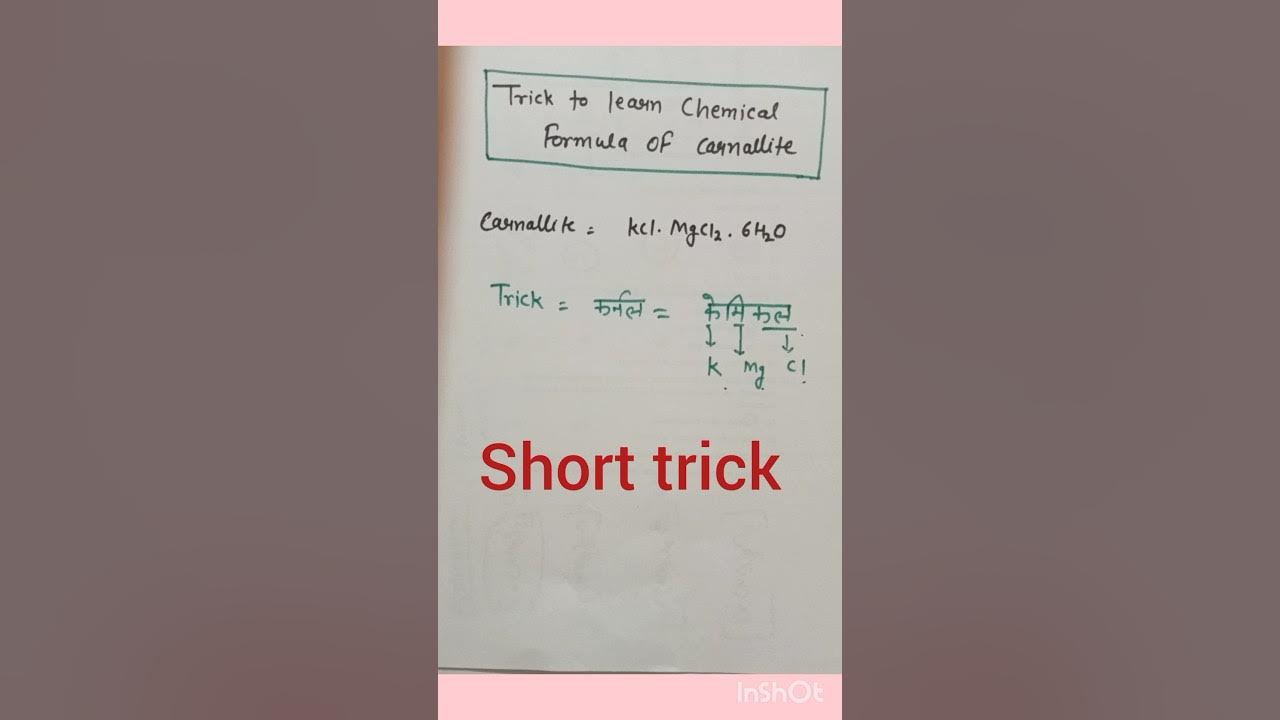 Trick to learn Chemical
Formula of carnallite
Carnallite = kcl. MgCl2. 6H2O
Trick = कर्नल = केमिकल
K Mg Cl
Short trick
InShOt